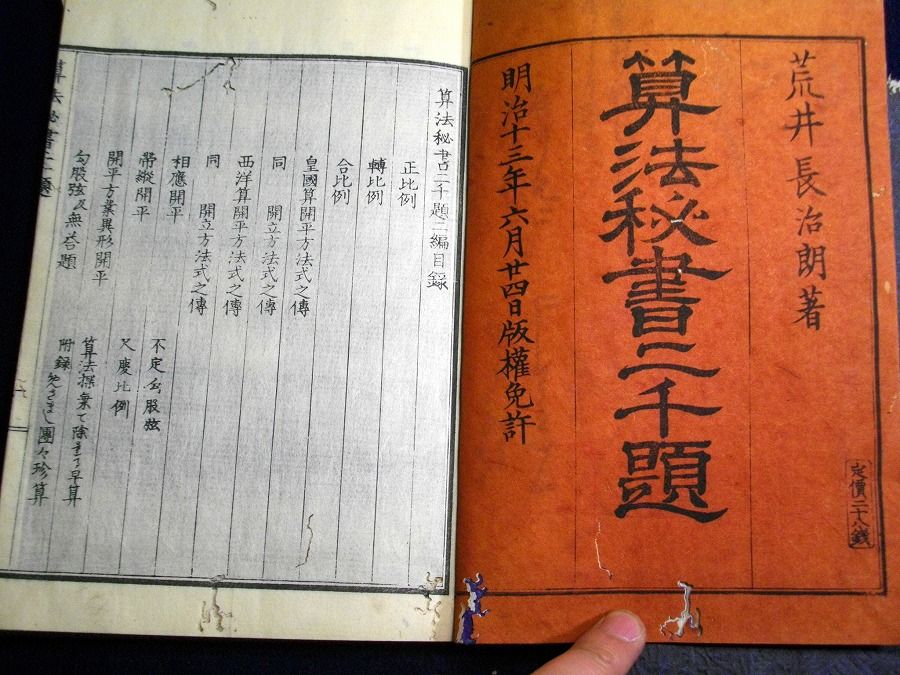 荒井長治朗著
算法秘書二千題
明治十三年六月廿四日版權免許
定價二十八錢
算法秘書二千題二編目録
正比例
轉比例
合比例
皇國算開平方法式之傳
同 開立方法式之傳
西洋算開平方法式之傳
同 開立方法式之傳
相應開平
帶縱開平
開平方業異形開平
勾股弦及無答題
不定勾股弦
尺度比例
算法探棄て除早算
附録 團々珍算
算法秘書二千題